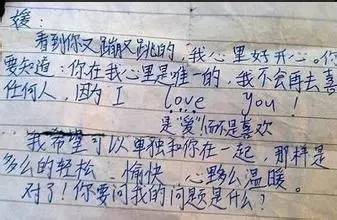 媛：
看到你又蹦又跳的，我心里好开心。你
要知道：你在我心里是唯一的，我不会再去喜
任何人，因为 I love you！
是“爱”而不是喜欢
我希望可以单独和你在一起，那样是
多么的轻松、愉快、心多么温暖。
对了！你要问我的问题是什么？